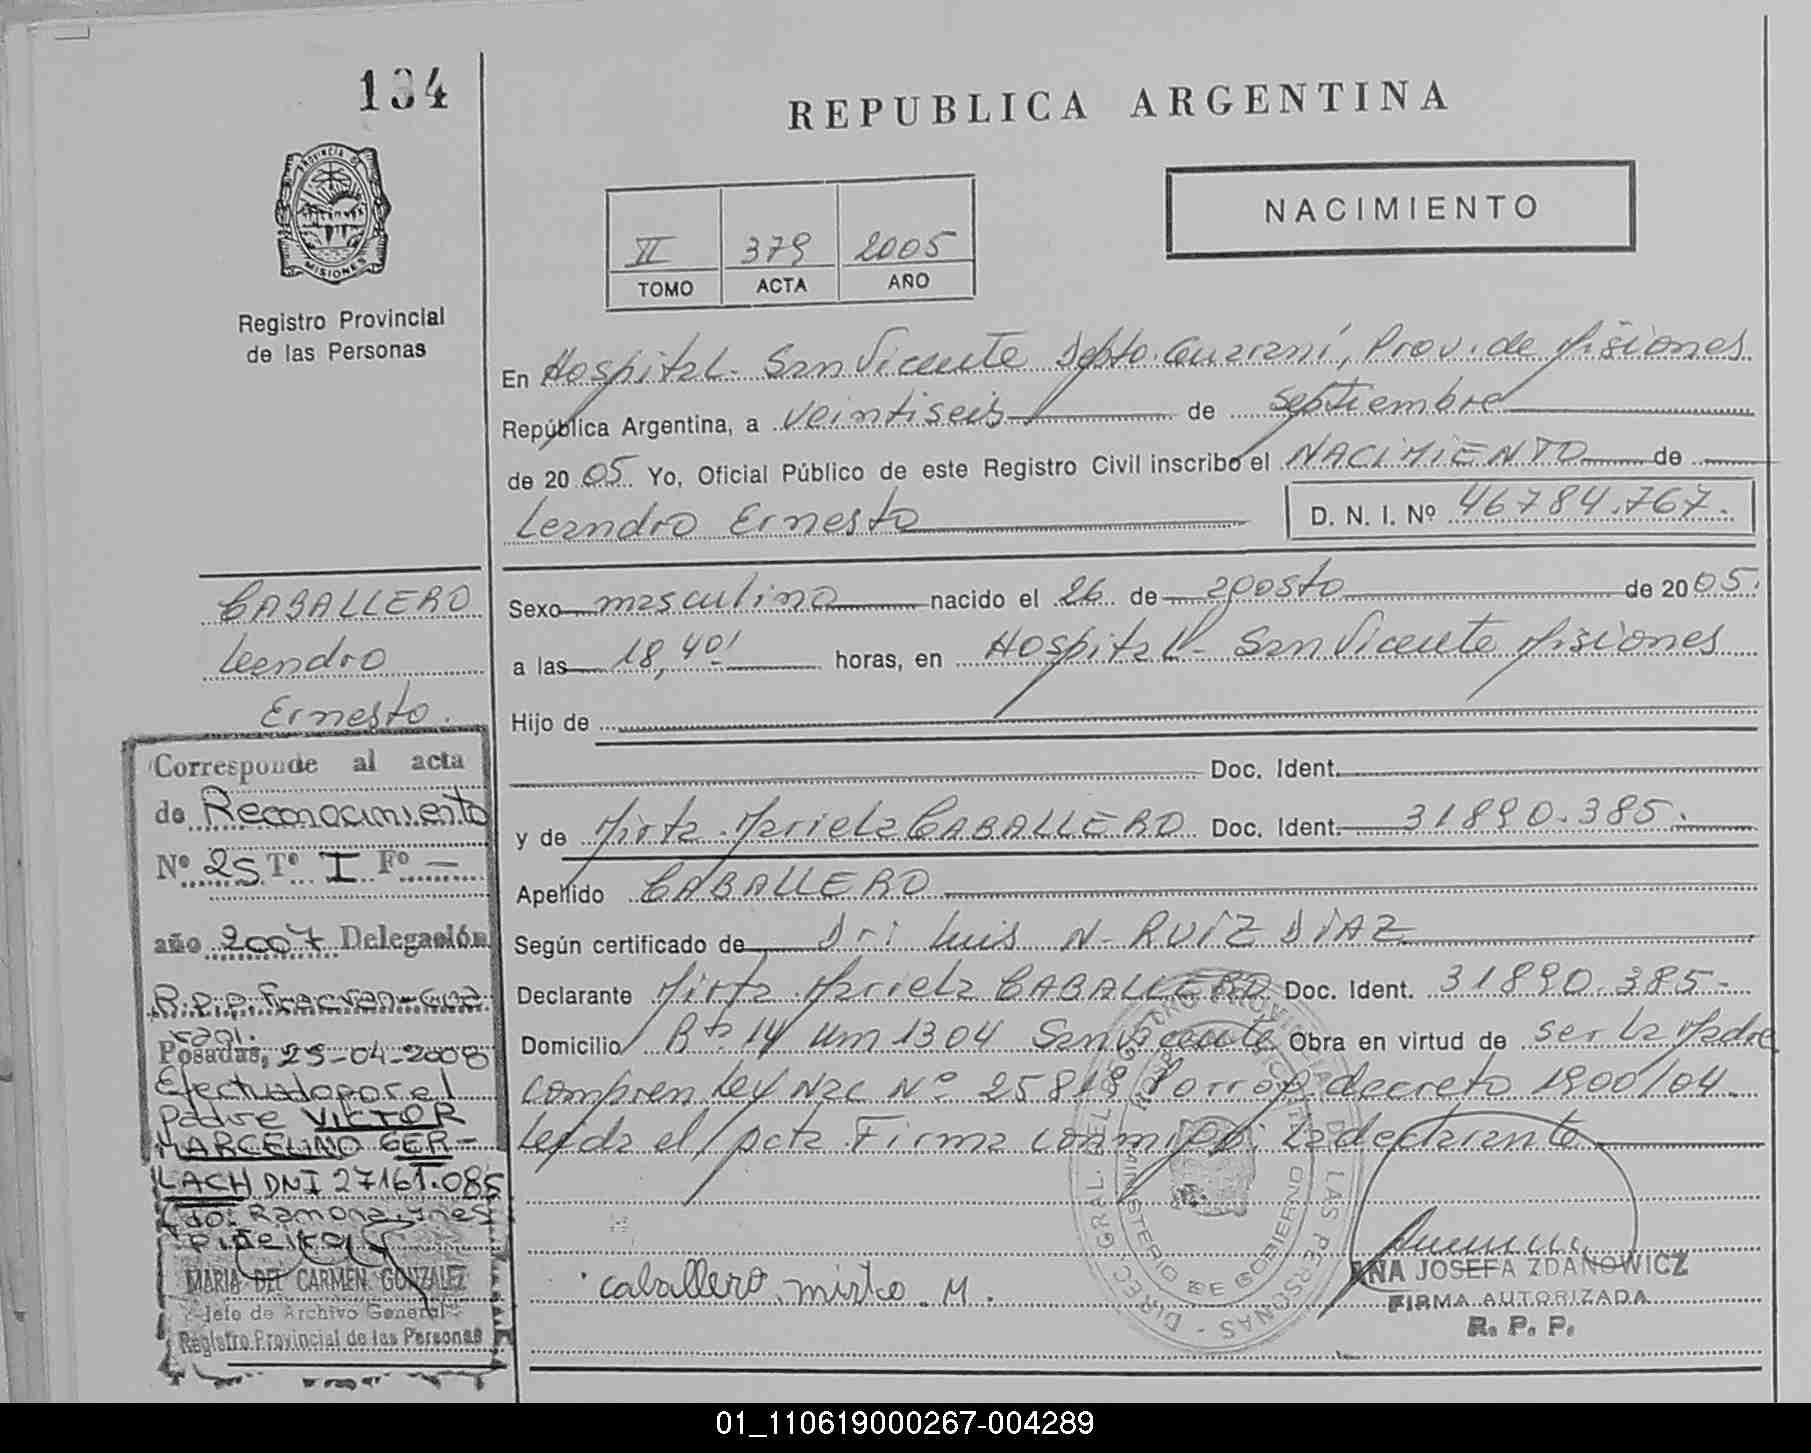 134
PROVINCIA DE
MISIONES
Registro Provincial
de las Personas
REPUBLICA ARGENTINA
NACIMIENTO
II 379 2005
TOMO ACTA AÑO
En Hospital - San Vicente Dpto. Guaraní, Prov. de Misiones
República Argentina, a veintiseis de septiembre
de 20 05 Yo, Oficial Público de este Registro Civil inscribo el NACIMIENTO de
Leandro Ernesto D. N. I. Nº 46784.767.
CABALLERO
Leandro
Ernesto.
Sexo masculino nacido el 26 de agosto de 20 05.
a las 18,40' horas, en Hospital - San Vicente Misiones
Hijo de
Doc. Ident.
y de Mirta Mariela CABALLERO Doc. Ident. 31890.385.
Apellido CABALLERO
Según certificado de Dr: Luis N. RUIZ DIAZ
Declarante Mirta Mariela CABALLERO Doc. Ident. 31890.385-
Domicilio Rta 14 Km 1304 San Vicente Obra en virtud de ser la Madre
Compren Ley Nac Nº 25818 Porrog decreto 1900/04
Leida el acta Firma conmigo: la declarante
caballero mirta M.
ANA JOSEFA ZDANOWICZ
FIRMA AUTORIZADA
R. P. P.
Corresponde al acta
de Reconocimiento
Nº 25 Tº I Fº —
año 2007 Delegación
R.P.P. Fracran-Gua
rani.
Posadas, 25-04-2008
Efectuado por el
padre VICTOR
MARCELINO GER-
LACH DNI 27161.085
Fdo: Ramona Ines
MARIA DEL CARMEN GONZALEZ
Jefe de Archivo General
Registro Provincial de las Personas
01_110619000267-004289